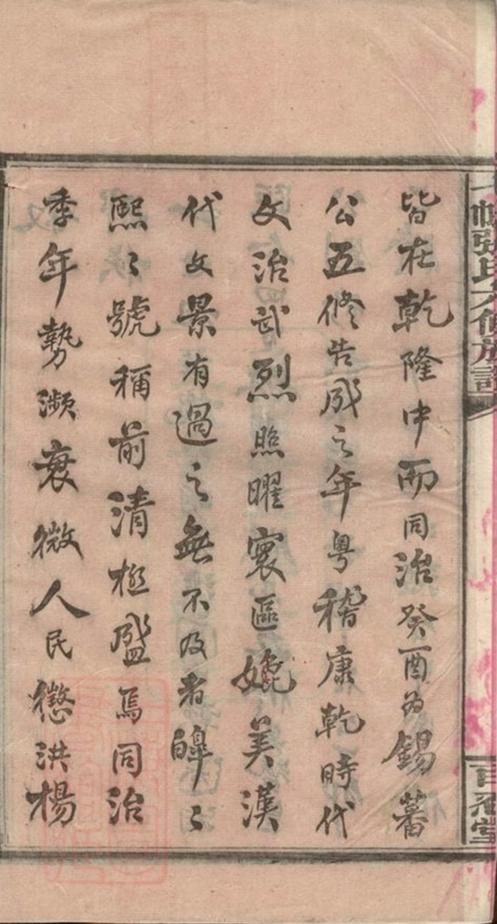 皆在乾隆中而同治癸酉為錫蕃
公五修告成之年粤稽康乾時代
文治武烈照曜寰區媲美漢
代文景有過之無不及者皥〻
熙〻號稱前清極盛焉同治
季年勢瀕衰微人民懲洪楊
張氏六修族譜
百忍堂